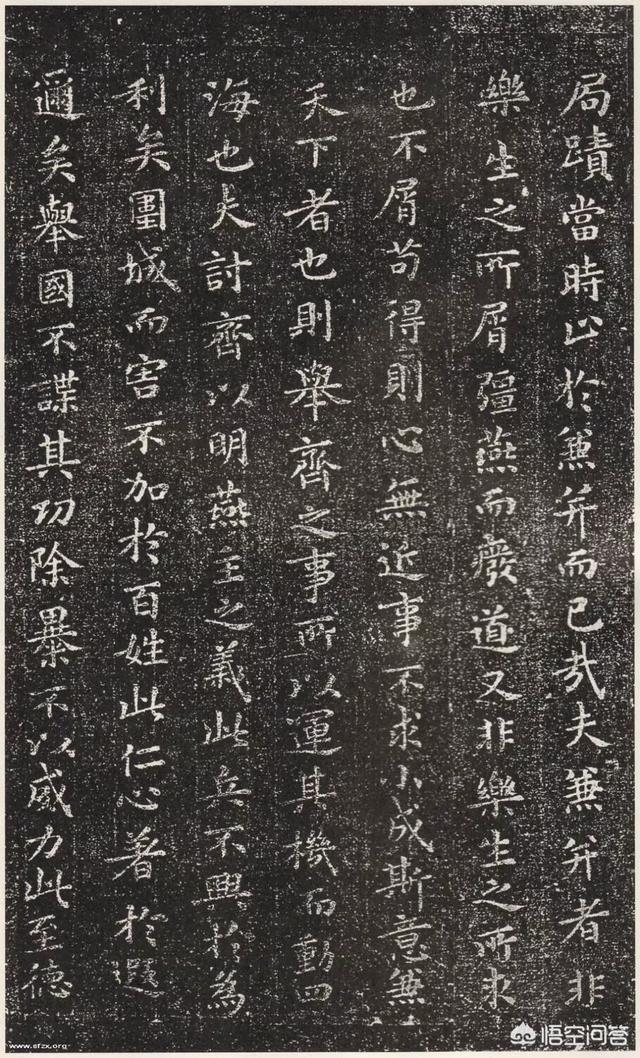 局蹟當時止於兼并而已哉夫兼并者非
樂生之所屑彊燕而癈道又非樂生之所求
也不屑苟得則心無近事不求小成斯意兼
天下者也則舉齊之事所以運其機而動四
海也夫討齊以明燕主之義此兵不興於為
利矣圍城而害不加於百姓此仁心著於遐
邇矣舉國不謀其功除暴不以威力此至德
www.sfzx.org
悟空问答